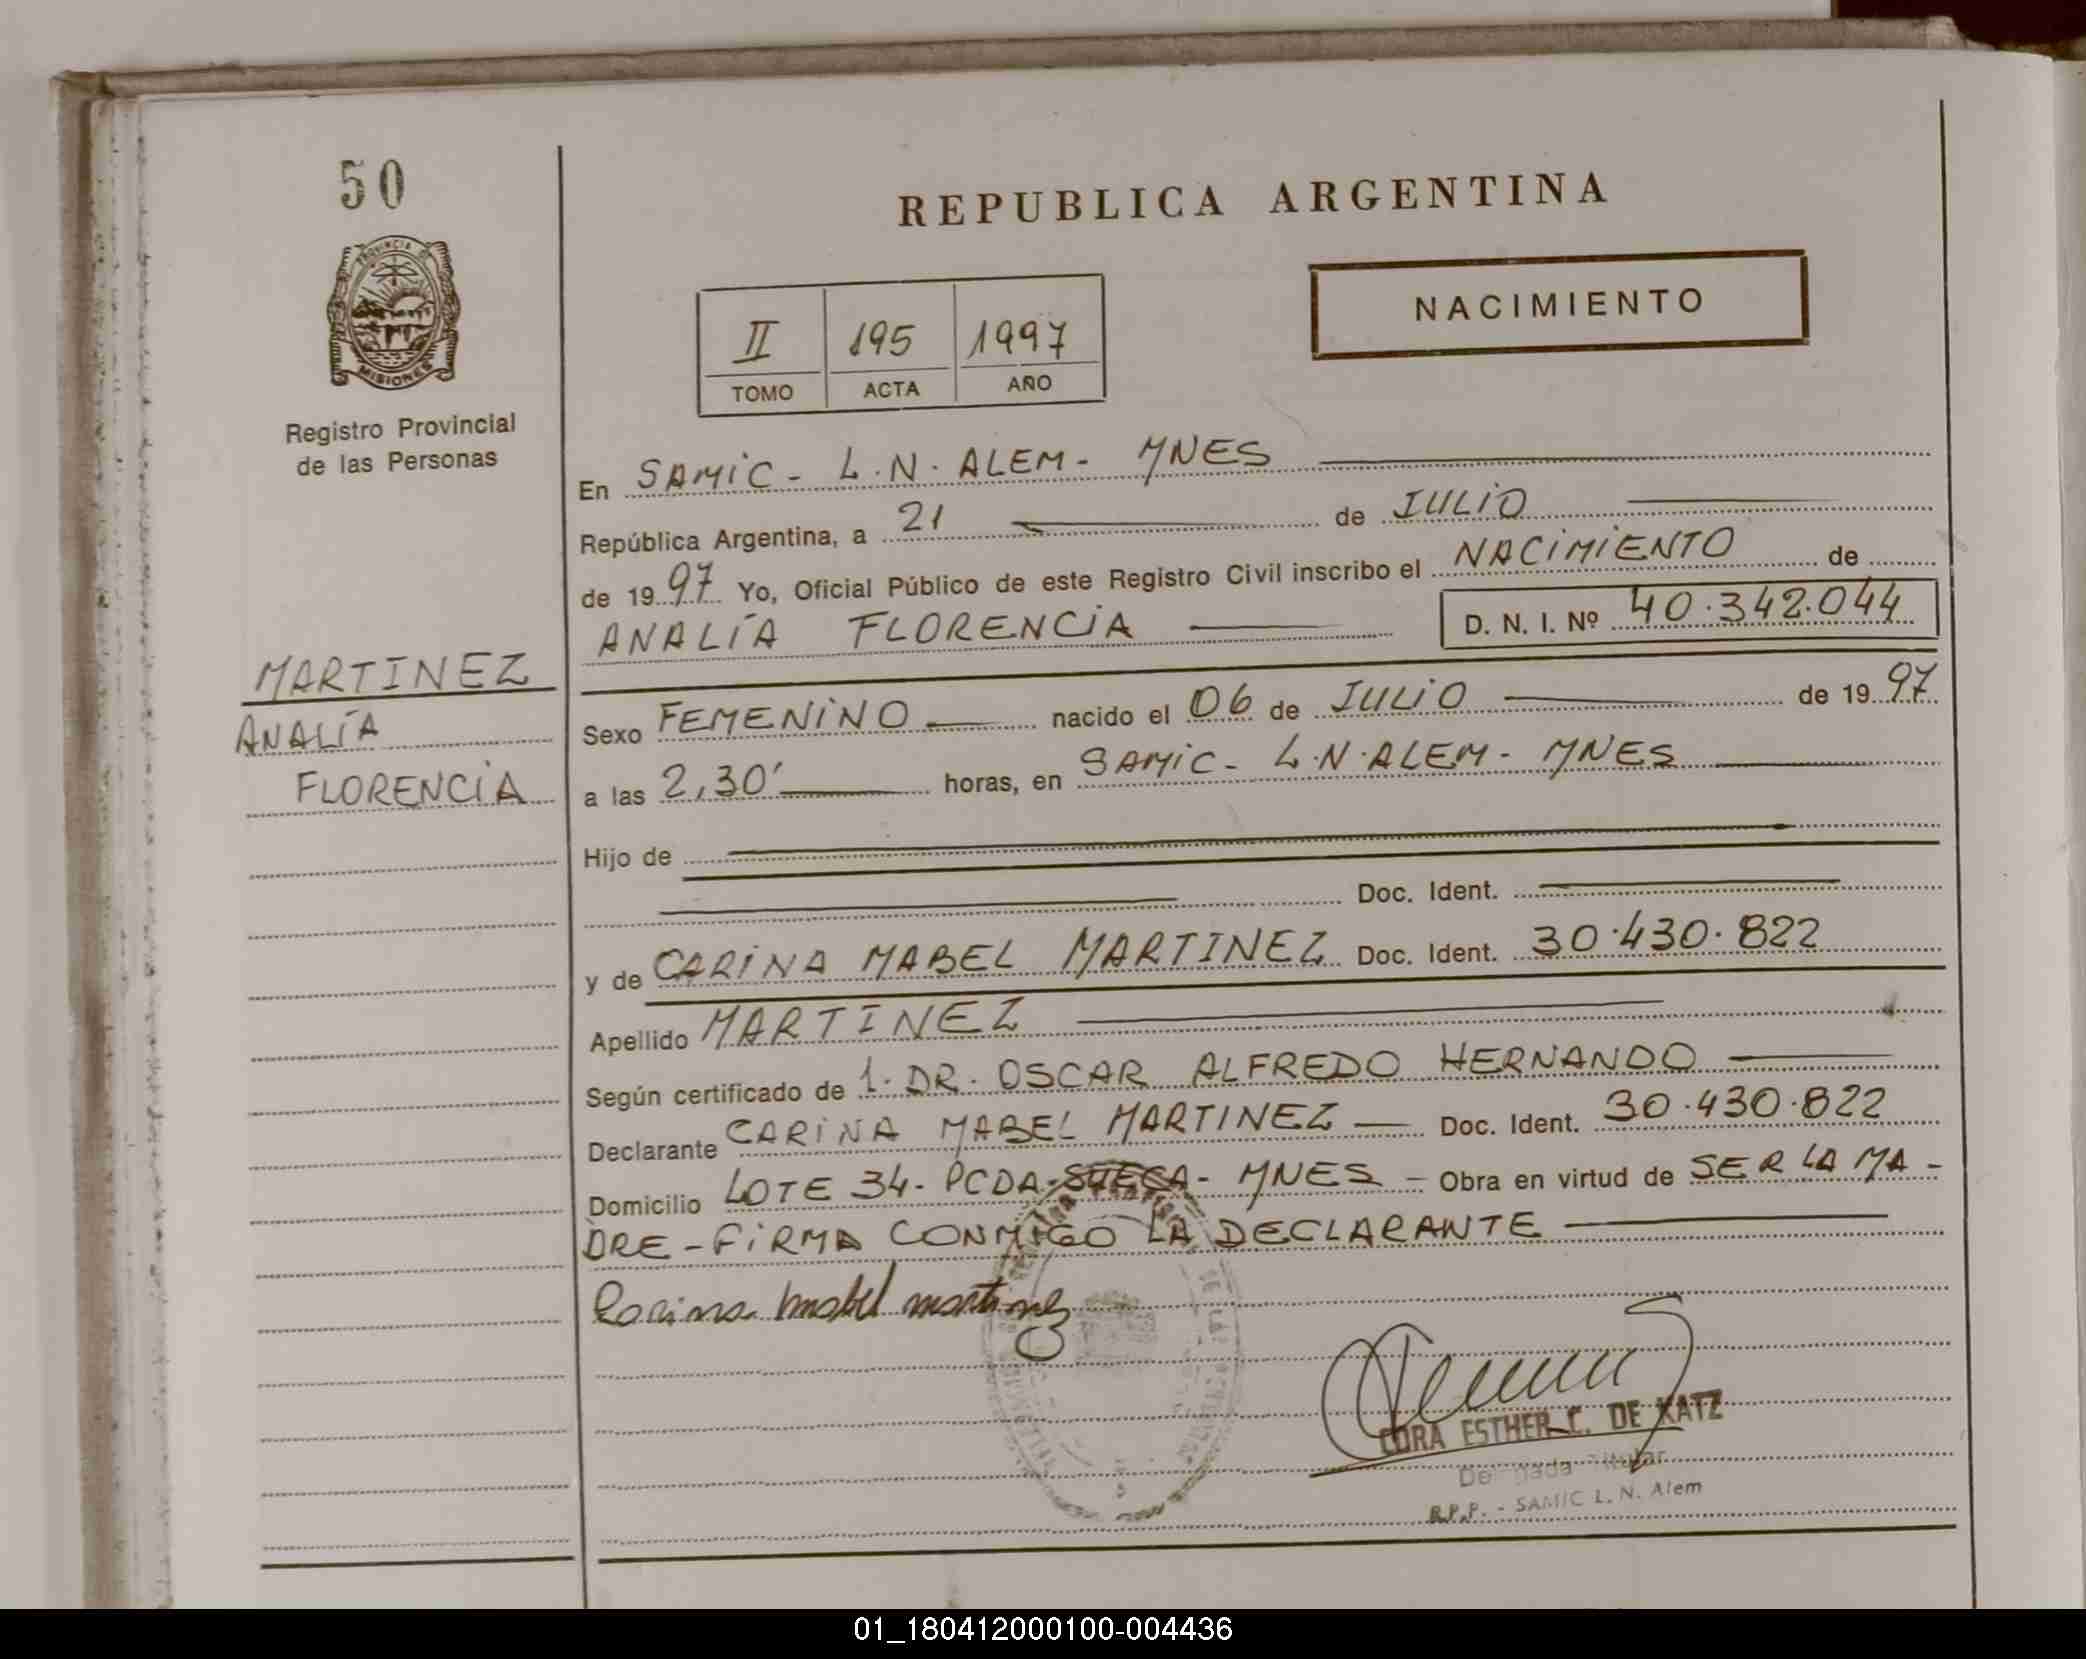 50
REPUBLICA ARGENTINA
PROVINCIA DE
MISIONES
Registro Provincial
de las Personas
II 195 1997
TOMO ACTA AÑO
NACIMIENTO
En SAMIC - L.N. ALEM - MNES
República Argentina, a 21 de JULIO
de 1997 Yo, Oficial Público de este Registro Civil inscribo el NACIMIENTO de
ANALÍA FLORENCIA D. N. I. Nº 40.342.044
MARTINEZ
ANALÍA
FLORENCIA
Sexo FEMENINO nacido el 06 de JULIO de 1997
a las 2,30' horas, en SAMIC - L.N. ALEM - MNES
Hijo de
Doc. Ident.
y de CARINA MABEL MARTINEZ Doc. Ident. 30.430.822
Apellido MARTINEZ
Según certificado de 1. DR. OSCAR ALFREDO HERNANDO
Declarante CARINA MABEL MARTINEZ Doc. Ident. 30.430.822
Domicilio LOTE 34 - PCDA - SUECA - MNES - Obra en virtud de SER LA MA-
DRE - FIRMA CONMIGO LA DECLARANTE
Carina Mabel Martinez
CORA ESTHER C. DE KATZ
Delegada Titular
R.P.P. - SAMIC L. N. Alem
01_180412000100-004436